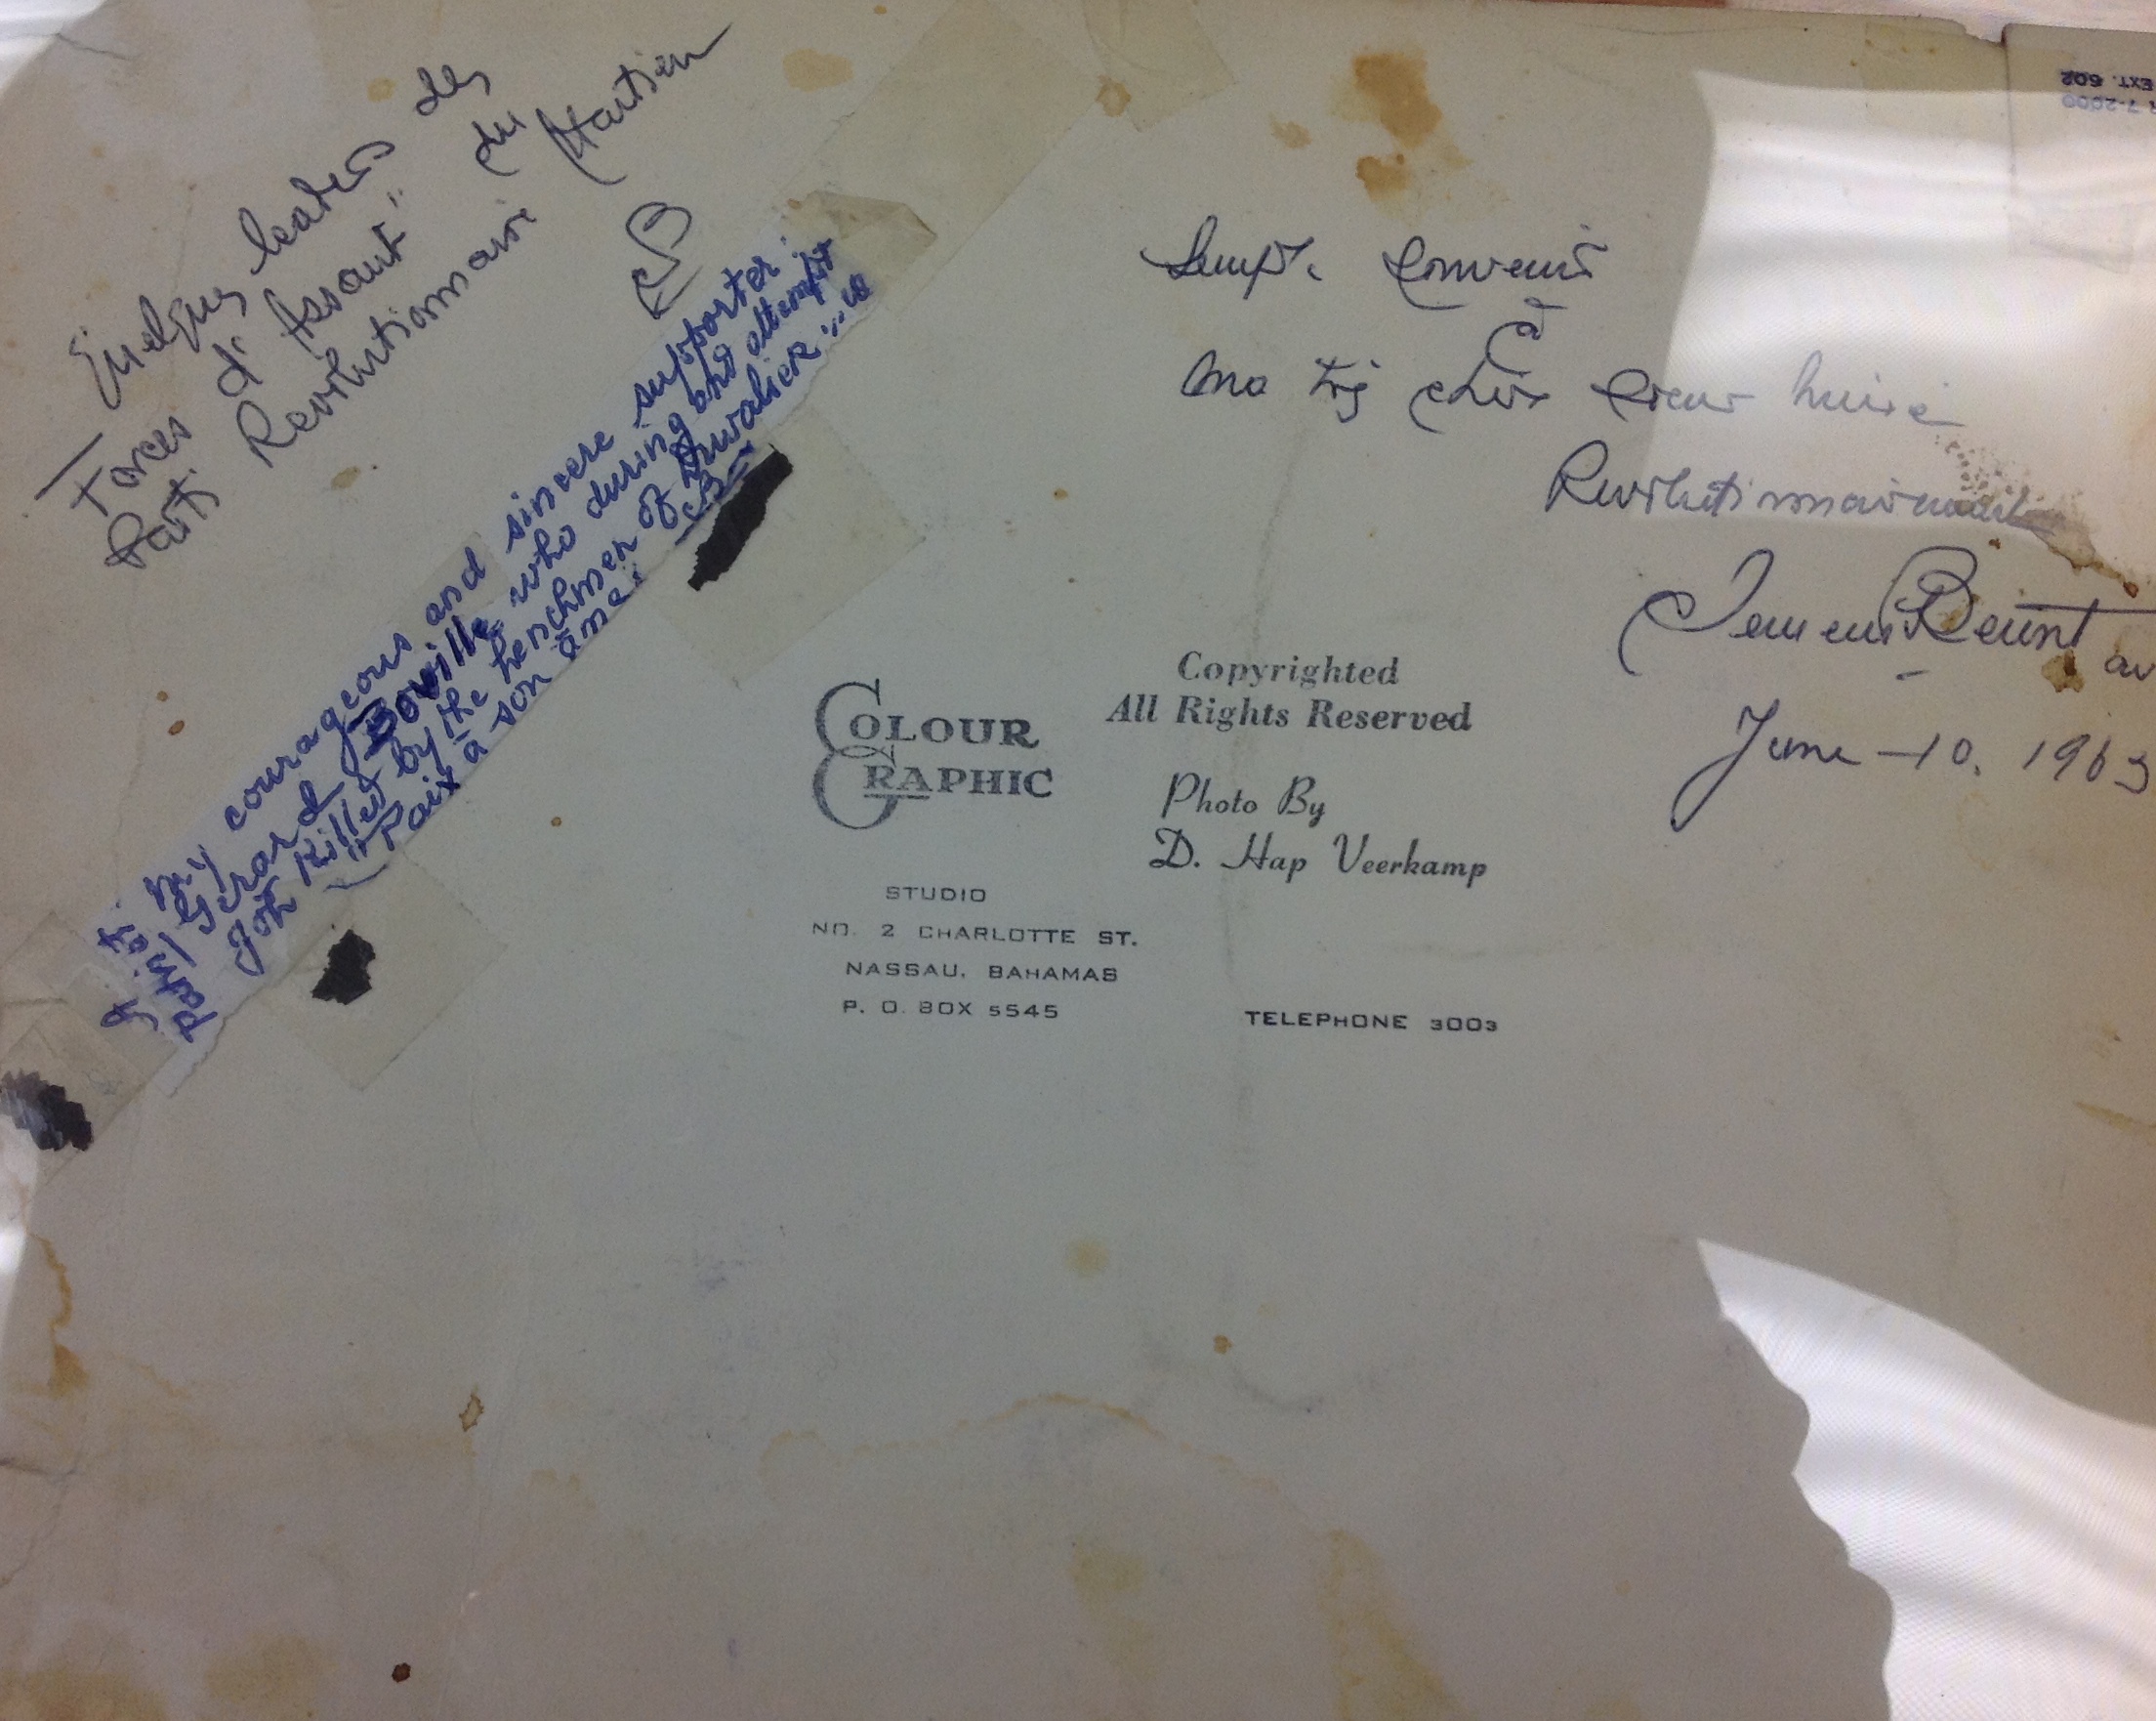 Quelques leaders des
Forces d'Assaut" du
Parti Revolutionnaire Haitien
to my courageous and sincere supporter:
Gerard Boville who during one attempt
got killed by the henchmen of Duvalier:
"Paix à son âme!
CB
Souvenir
à
Ma très chère soeur
Revolutionnairement
Clement Benoit
June - 10. 1963
COLOUR
GRAPHIC
Copyrighted
All Rights Reserved
Photo By
D. Hap Veerkamp
STUDIO
NO. 2 CHARLOTTE ST.
NASSAU, BAHAMAS
P. O. BOX 5545
TELEPHONE 3003
7-2000
EXT. 602